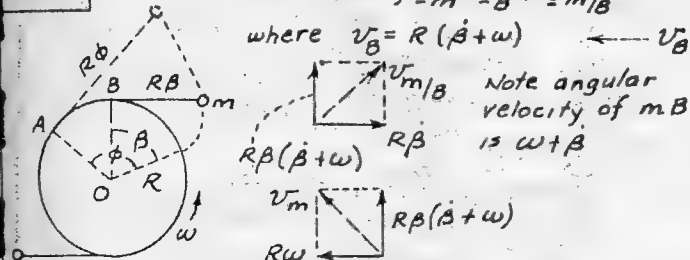 = m/B
where v_B = R(β̇+ω) v_B
v_m/B
Note angular
velocity of mB
is ω+β̇
Rβ̇
Rβ(β̇+ω)
v_m
Rβ(β̇+ω)
Rω
Rφ
B Rβ
m
A
φ β
R
O
ω